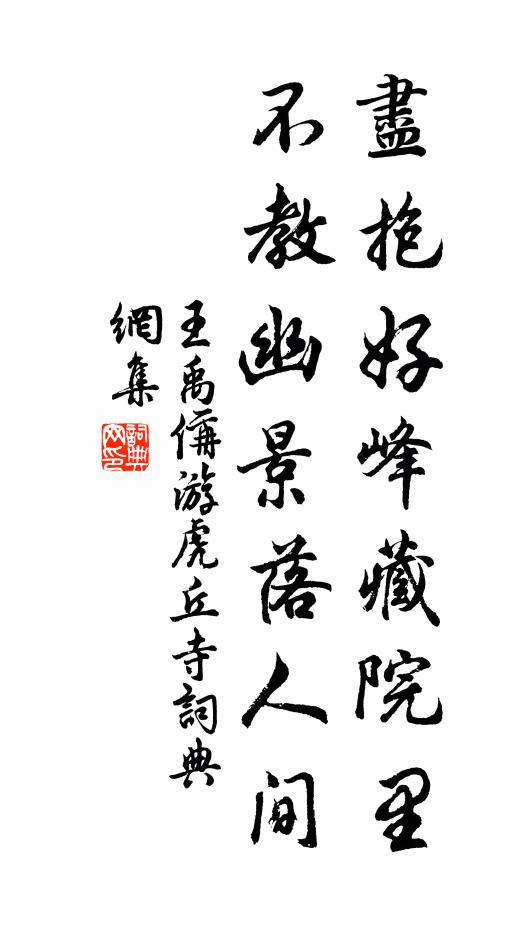 盡抱好峰藏院里
不教幽景落人间
王禹偁游虎丘寺詞典
網集
詞典
网印